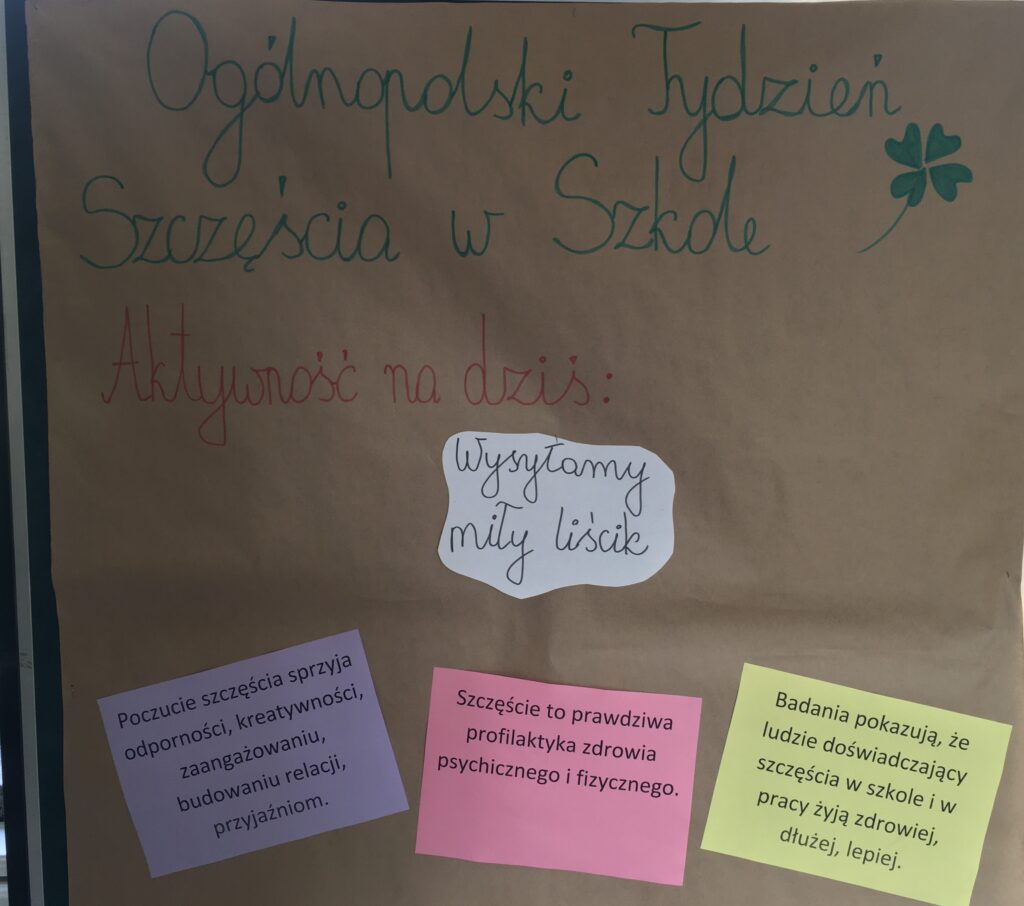 Ogólnopolski Tydzień
Szczęścia w Szkole
Aktywność na dziś:
Wysyłamy
miły liścik
Poczucie szczęścia sprzyja
odporności, kreatywności,
zaangażowaniu,
budowaniu relacji,
przyjaźniom.
Szczęście to prawdziwa
profilaktyka zdrowia
psychicznego i fizycznego.
Badania pokazują, że
ludzie doświadczający
szczęścia w szkole i w
pracy żyją zdrowiej,
dłużej, lepiej.